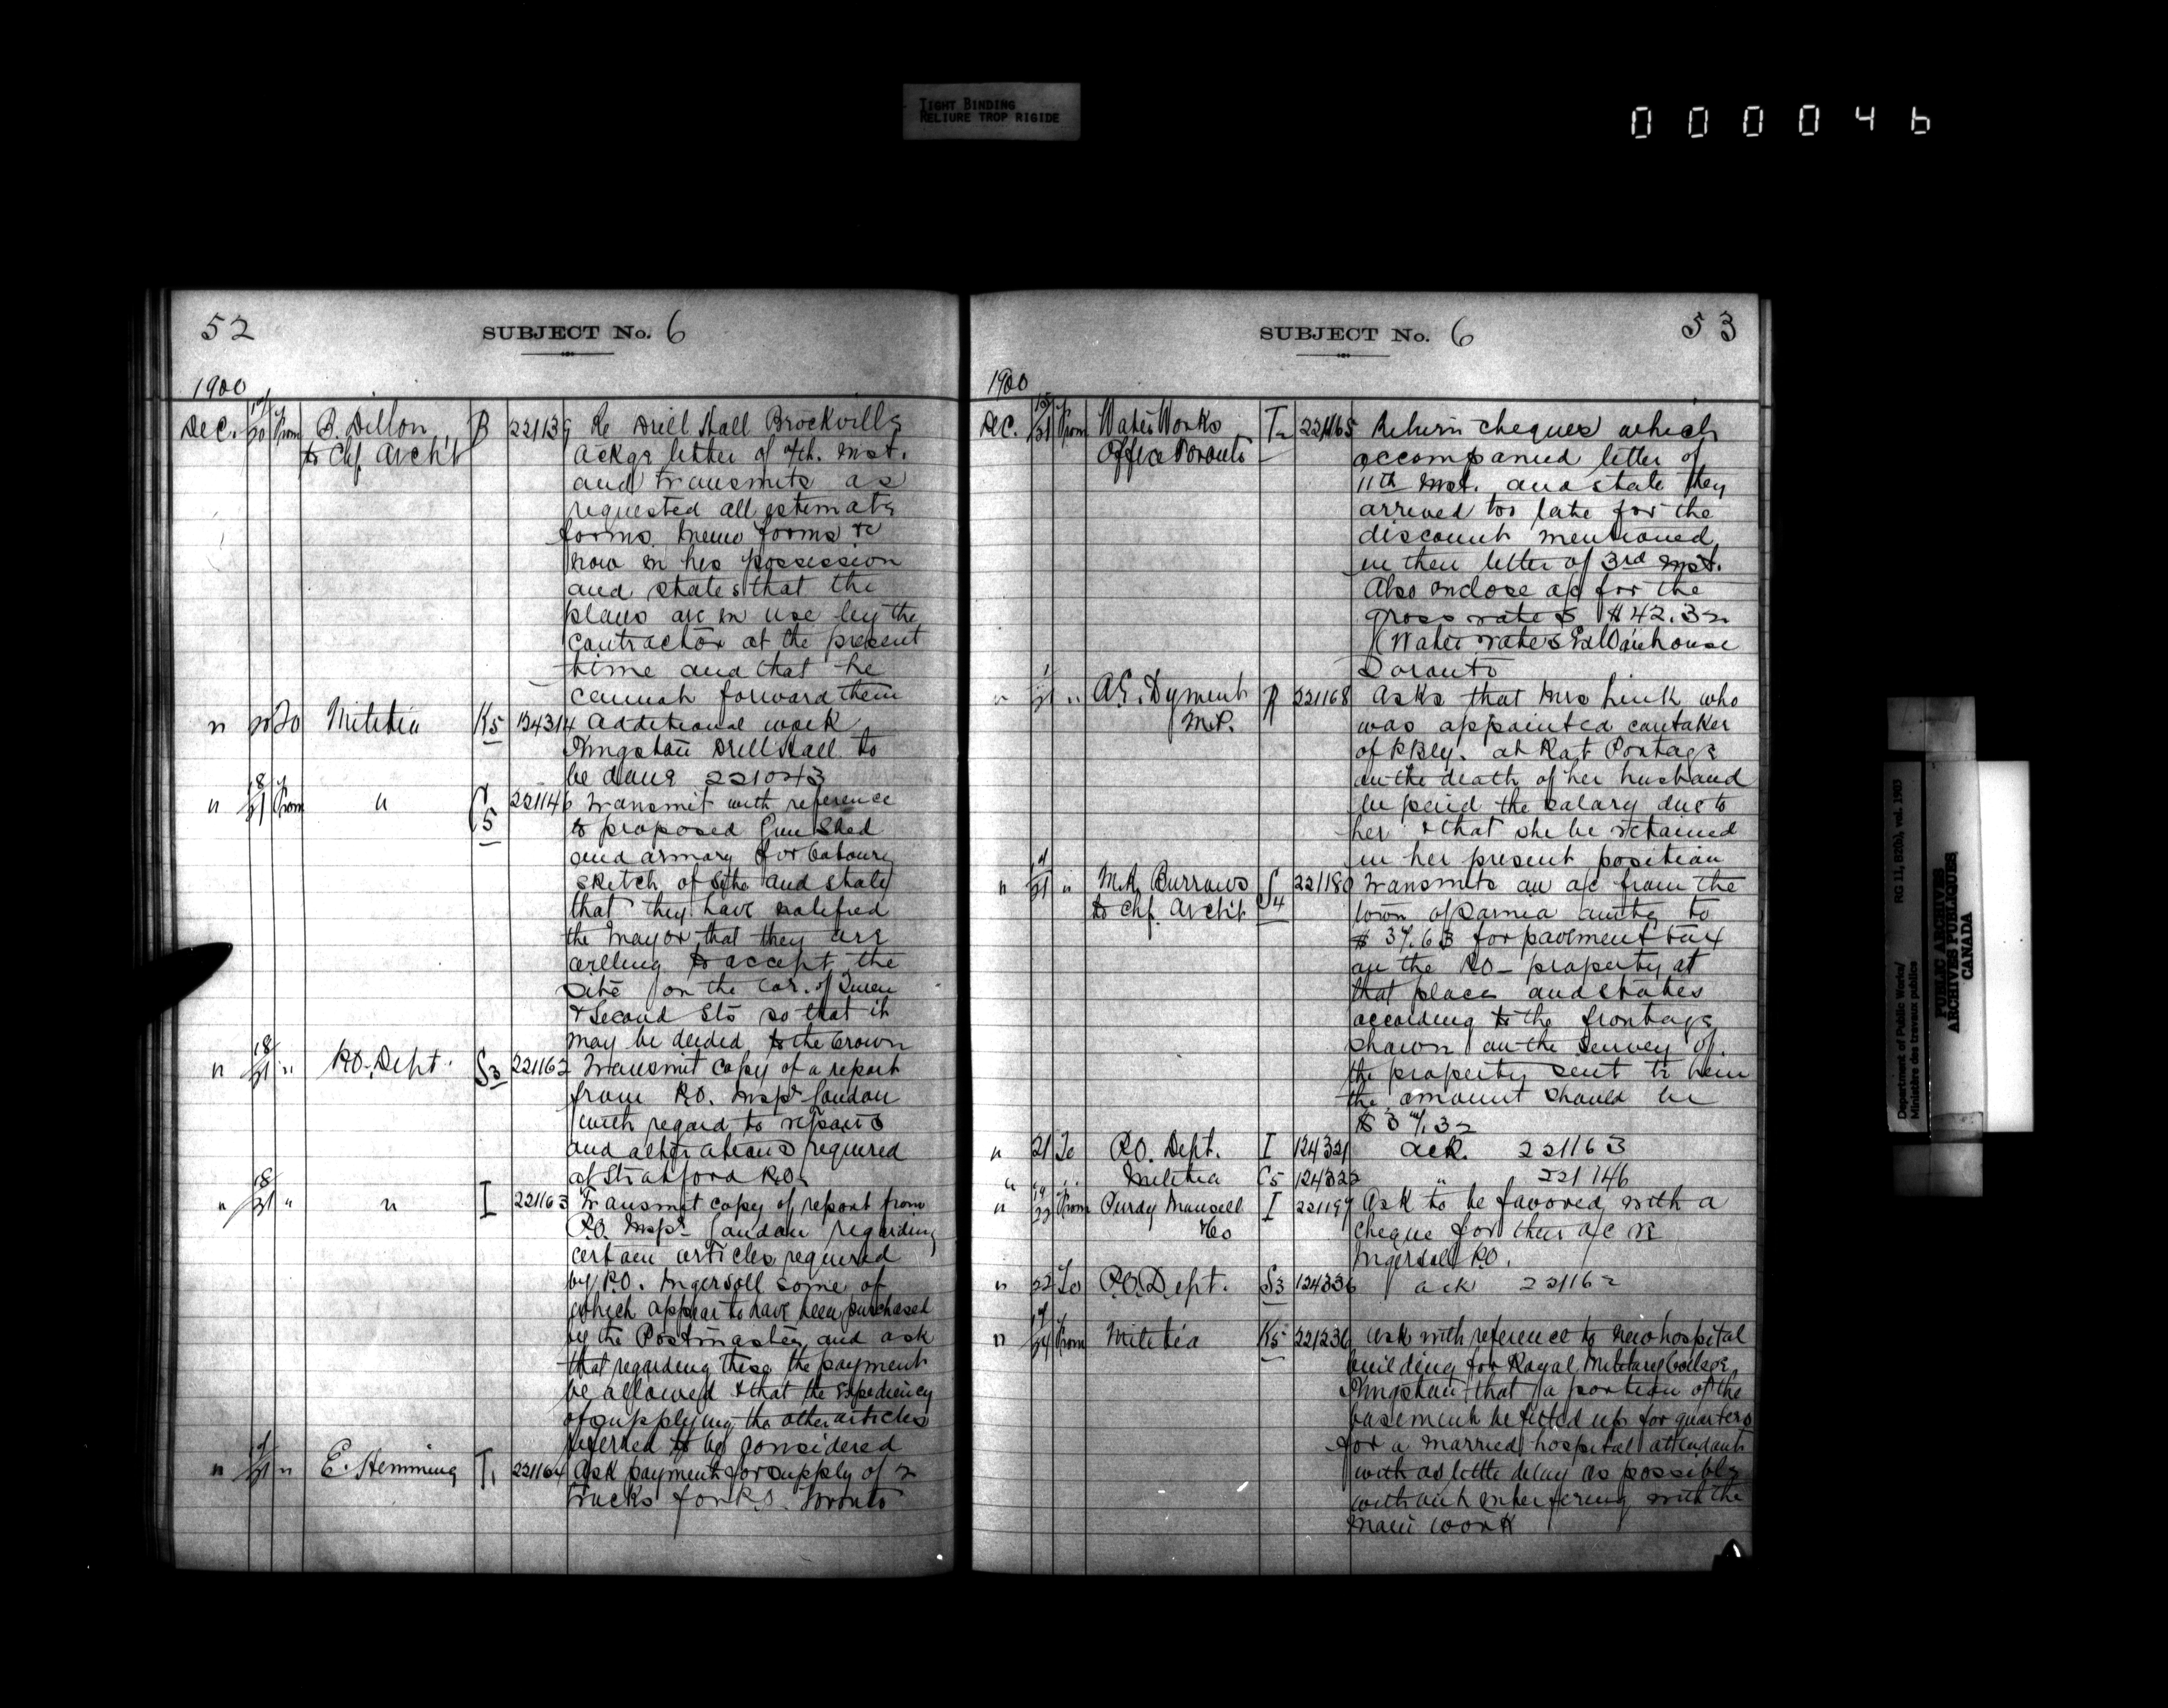 TIGHT BINDING
RELIURE TROP RIGIDE
000046
52
SUBJECT No. 6
1900
Dec. 20 From B. Dillon B 221139 Re Drill Hall Brockville
to Chf. Archt Ackge letter of inst.
and transmits as
requested all estimate
forms, memo forms &c
now in his possession
and states that the
plans are in use by the
contractor at the present
time and that he
cannot forward them
" 20 To Militia K5 124314 Additional work
Kingston Drill Hall to
be done 221043
" 18/21 From " C5 221146 Transmit with reference
to proposed Gun Shed
and armory for Cobourg
sketch of site and state
that they have notified
the Mayor that they are
willing to accept the
site on the cor. of Queen
& Second Sts so that it
may be deeded to the Crown
" 18/21 " P.O. Dept. S3 221162 Transmit copy of a report
from P.O. Inspr London
with regard to repairs
and alterations required
at Stratford P.O.
" 18/21 " " I 221163 Transmit copy of report from
P.O. Inspr London regarding
certain articles required
by P.O. Ingersoll some of
which appear to have been purchased
by the Postmaster, and ask
that regarding these the payment
be allowed & that the expediency
of supplying the other articles
referred to be considered
" 21 " E. Hemming T1 221164 Ask payment for supply of 2
trucks for P.O. Toronto
53
SUBJECT No. 6
1900
Dec. 15/21 From Water Works T2 221165 Return cheques which
Office Toronto accompanied letter of
11th inst. and state they
arrived too late for the
discount mentioned
in their letter of 3rd inst.
Also enclose a/c for the
gross rates $42.32
(Water rates Ex. Warehouse
Toronto
" 21 " A.E. Dyment R 221168 Asks that Mrs Link who
M.P. was appointed caretaker
of P.Bly. at Rat Portage
on the death of her husband
be paid the salary due to
her & that she be retained
in her present position
" 21 " Burrows S4 221180 Transmits an a/c from the
to Chf. Archt. town of Sarnia amtg to
for pavement tax
on the P.O. property at
that place and states
according to the frontage
shown on the survey of
the property sent to him
the amount should be
" 21 To P.O. Dept. I 124321 ack. 221163
" " " Militia C5 124322 " 221146
" 19/22 From Purdy Mansell I 221197 Ask to be favored with a
& Co cheque for their a/c re
Ingersoll P.O.
" 22 To P.O. Dept. S3 124336 ack 221162
" 24 From Militia K5 221236 Ask with reference to new hospital
building for Royal Military College,
Kingston that a portion of the
basement be fitted up for quarters
for a married hospital attendant
with as little delay as possible
without interfering with the
main work
Department of Public Works/ RG 11, B2(b), vol. 1903
Ministère des travaux publics
PUBLIC ARCHIVES
ARCHIVES PUBLIQUES
CANADA